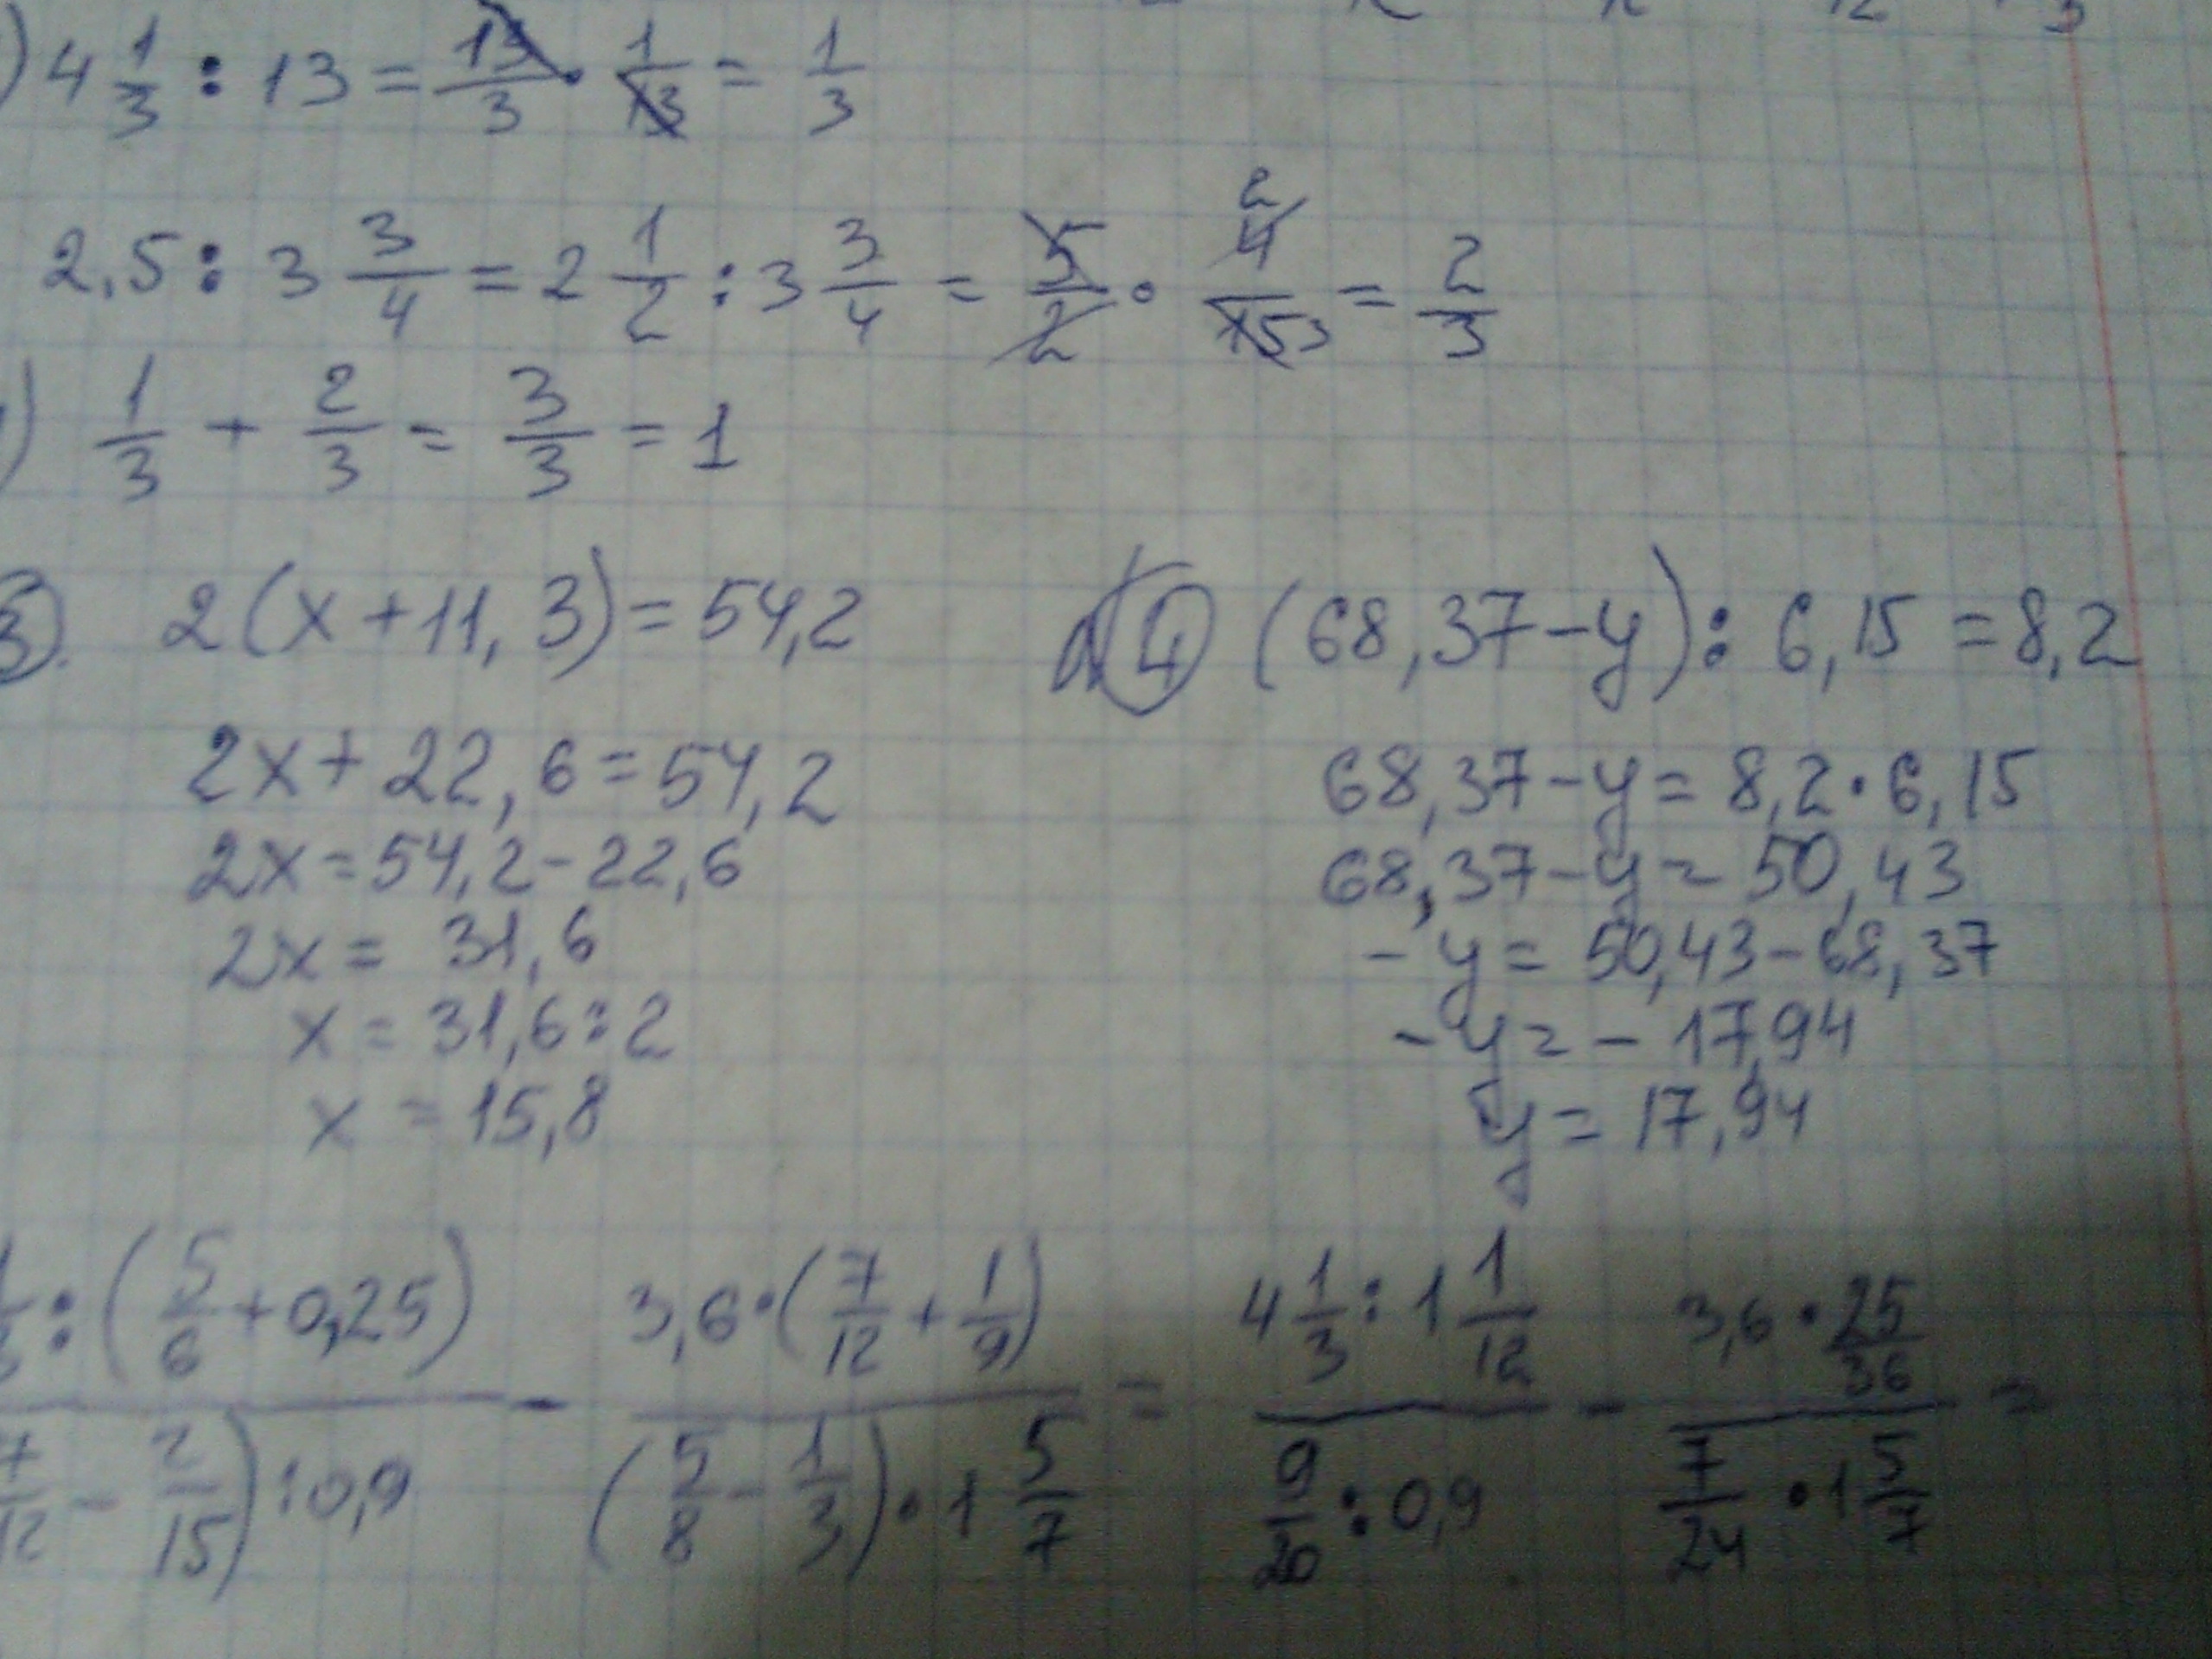 ) 4 1/3 : 13 = 13/3 · 1/13 = 1/3
2,5 : 3 3/4 = 2 1/2 : 3 3/4 = 5/2 · 4/15 = 2/3
) 1/3 + 2/3 = 3/3 = 1
3. 2(x+11,3)=54,2
2x+22,6=54,2
2x=54,2-22,6
2x=31,6
x=31,6:2
x=15,8
4 (68,37-y):6,15=8,2
68,37-y=8,2·6,15
68,37-y=50,43
-y=50,43-68,37
-y=-17,94
y=17,94
: (5/6 + 0,25) 3,6·(7/12 + 1/9) 4 1/3 : 1 1/12 3,6 · 25/36
- = - =
7/12 - 2/15) : 0,9 (5/8 - 1/3) · 1 5/7 9/20 : 0,9 7/24 · 1 5/7